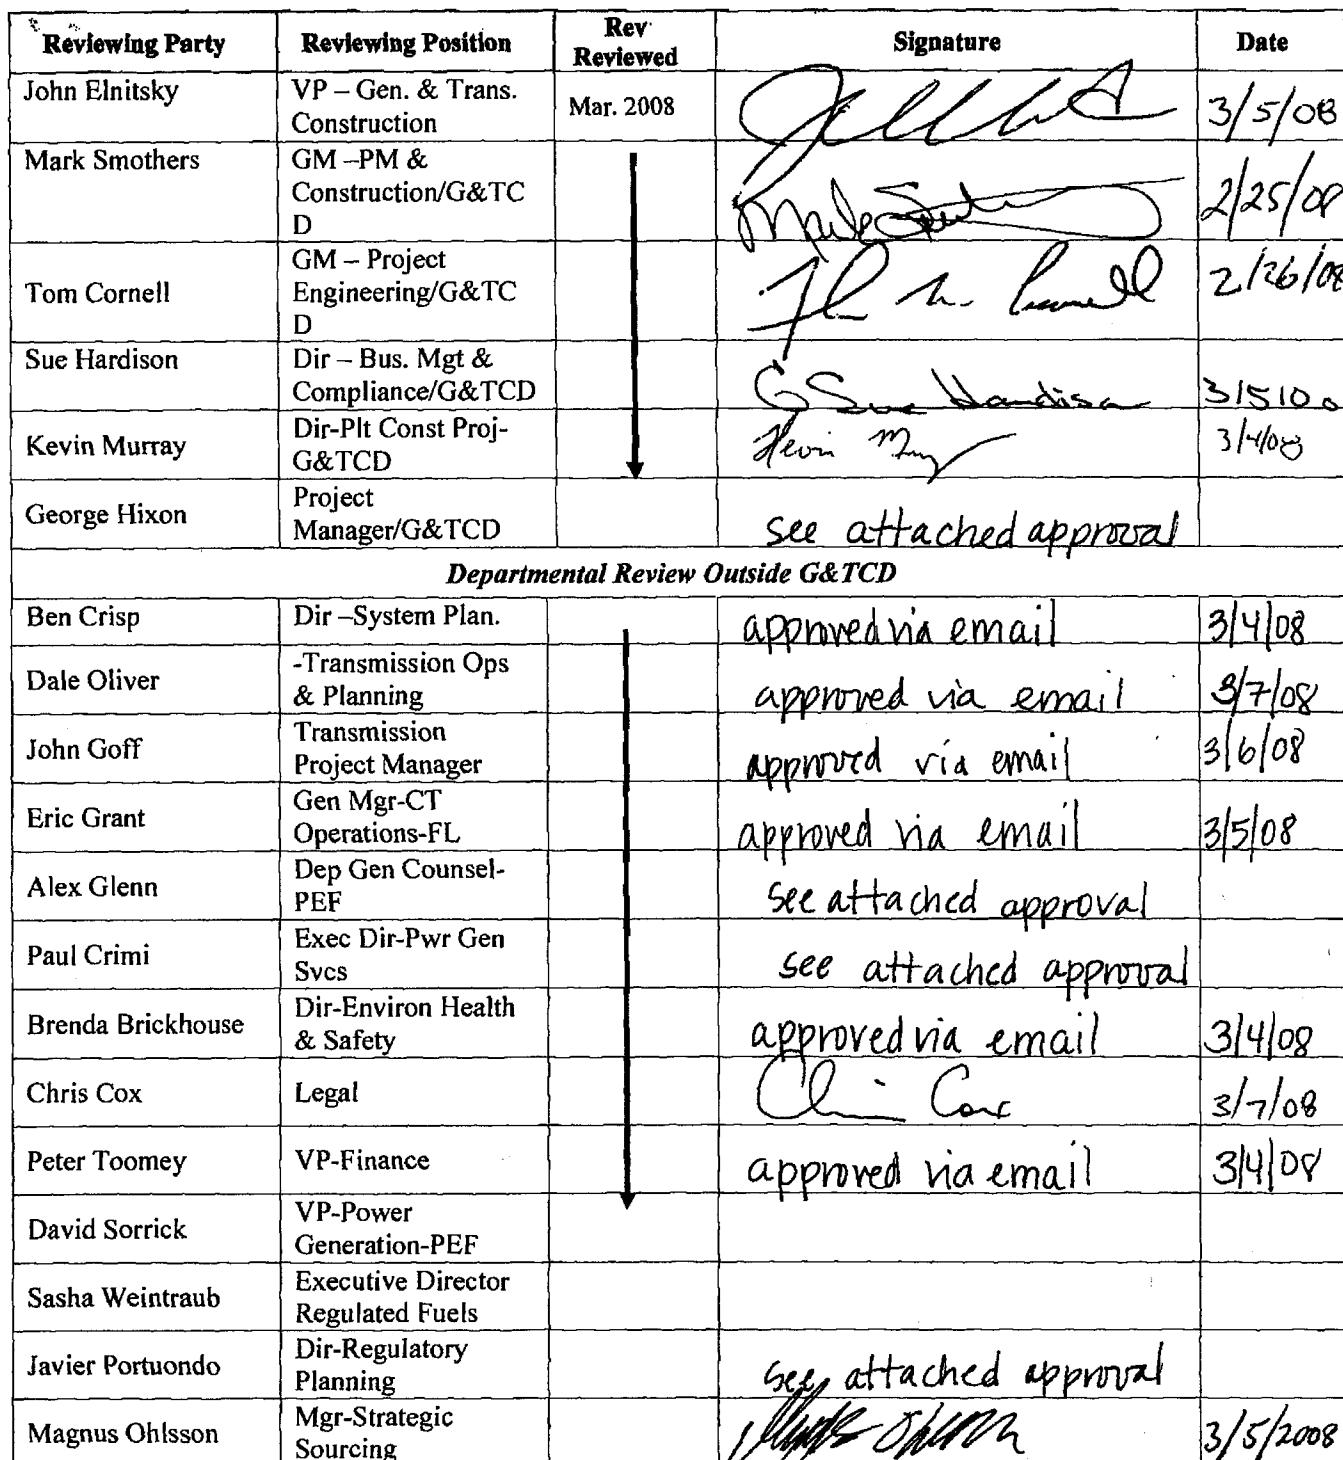 Reviewing Party Reviewing Position Rev Reviewed Signature Date
John Elnitsky VP – Gen. & Trans. Construction Mar. 2008 3/5/08
Mark Smothers GM –PM & Construction/G&TC D Mark 2/25/08
Tom Cornell GM – Project Engineering/G&TC D 2/26/08
Sue Hardison Dir – Bus. Mgt & Compliance/G&TCD G Sue Hardison
Kevin Murray Dir-Plt Const Proj-G&TCD Kevin 3/4/08
George Hixon Project Manager/G&TCD see attached approval
Departmental Review Outside G&TCD
Ben Crisp Dir –System Plan. approved via email 3/4/08
Dale Oliver -Transmission Ops & Planning approved via email 3/7/08
John Goff Transmission Project Manager approved via email 3/6/08
Eric Grant Gen Mgr-CT Operations-FL approved via email 3/5/08
Alex Glenn Dep Gen Counsel-PEF see attached approval
Paul Crimi Exec Dir-Pwr Gen Svcs see attached approval
Brenda Brickhouse Dir-Environ Health & Safety approved via email 3/4/08
Chris Cox Legal Chris Cox 3/7/08
Peter Toomey VP-Finance approved via email 3/4/08
David Sorrick VP-Power Generation-PEF
Sasha Weintraub Executive Director Regulated Fuels
Javier Portuondo Dir-Regulatory Planning see attached approval
Magnus Ohlsson Mgr-Strategic Sourcing 3/5/2008